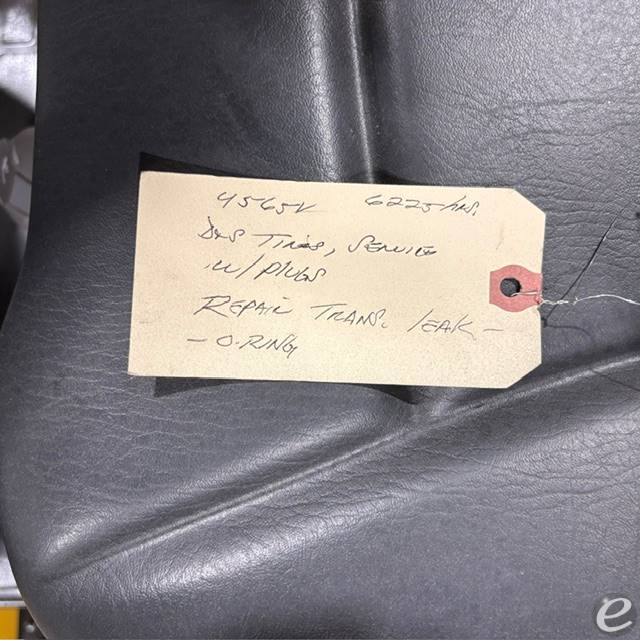 4565V 6225 hrs.
Tires, Service
w/ plugs
REPAIR TRANS. LEAK -
- O-RING
e